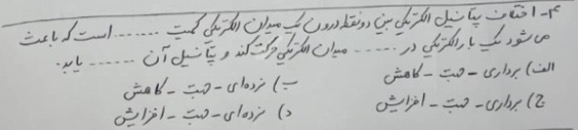 ۴- اختلاف پتانسیل الکتریکی بین دو نقطه درون یک میدان الکتریکی کمیت ....... است که باعث
می شود یک بار الکتریکی در ...... میدان الکتریکی حرکت کند و پتانسیل آن ...... یابد.
الف) برداری - جهت - کاهش ب) نرده ای - جهت - کاهش
ج) برداری - جهت - افزایش د) نرده ای - جهت - افزایش